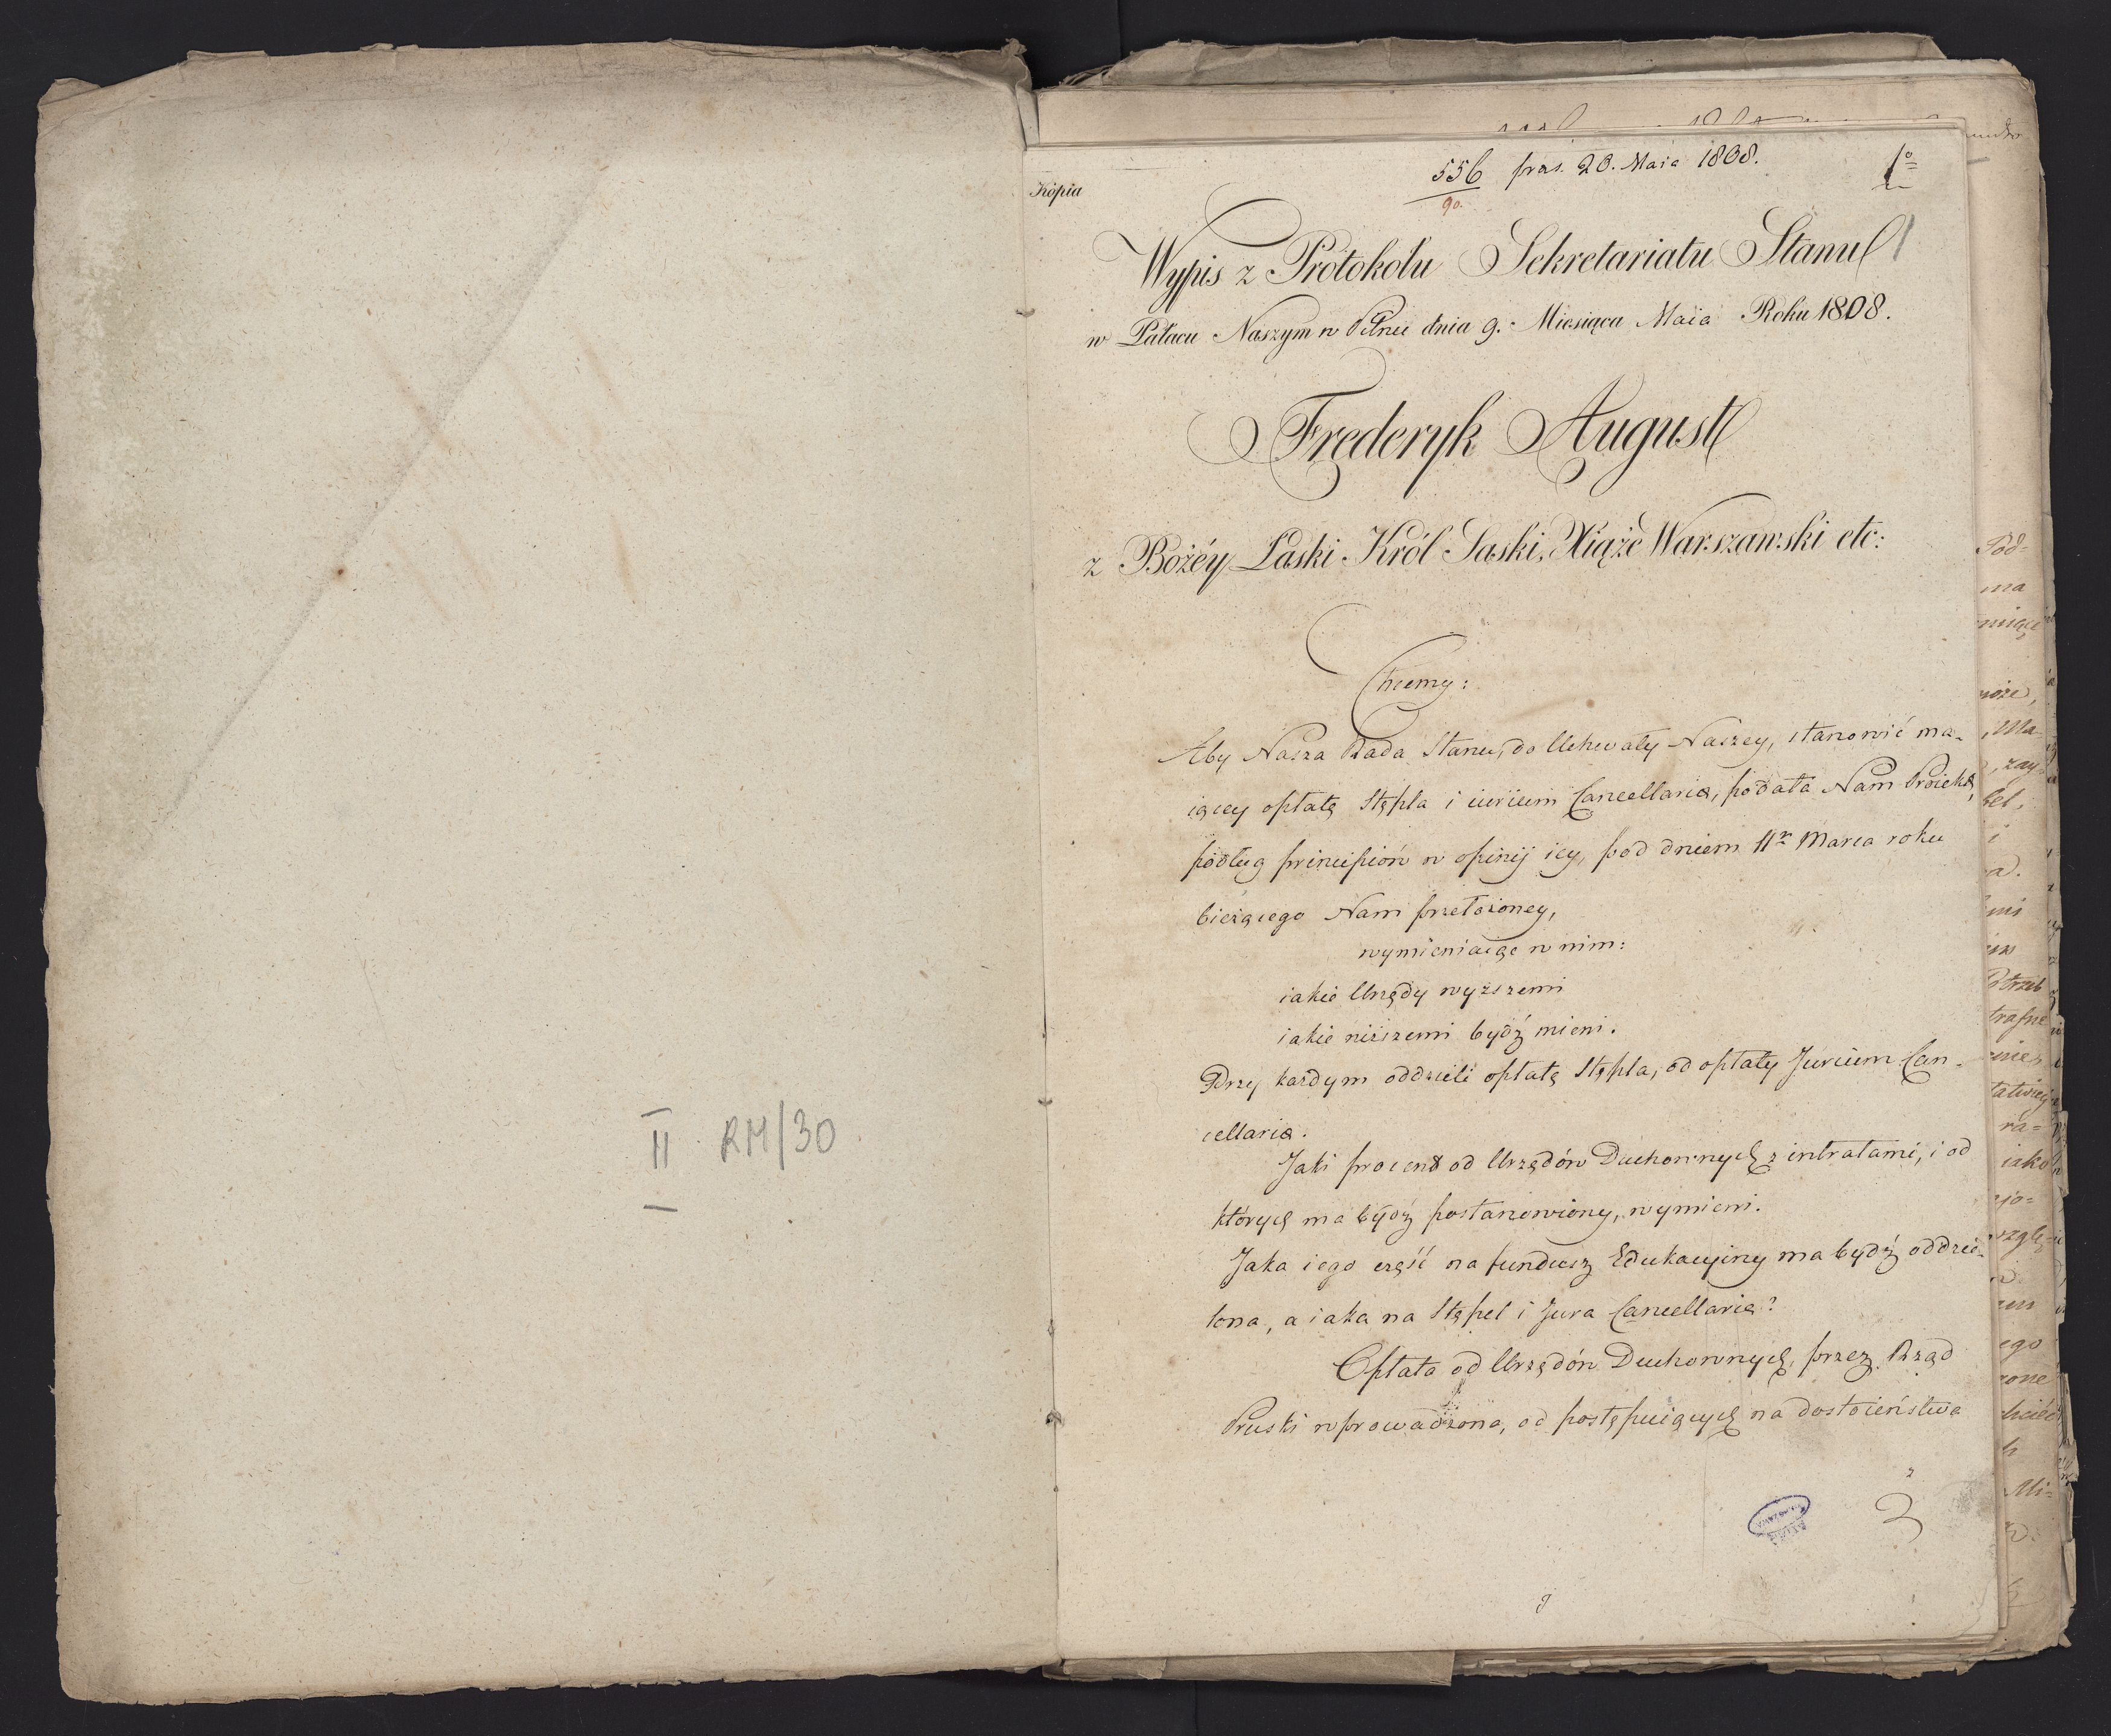 II RM/30
Kopia
556 pras. 20. Maia 1808.
90.
1º
1
Wypis z Protokołu Sekretariatu Stanu
w Pałacu Naszym w Pilnic dnia 9. Miesiąca Maia Roku 1808.
Frederyk August
z Bożéy Łaski Król Saski, Xiąże Warszawski etc:
Chcemy:
Aby Nasza Rada Stanu, do Uchwały Naszey, stanowić ma-
iącey opłatę Stępla i iurium Cancellariæ, podała Nam Proiekt,
podług principiów w opinij iey, pod dniem 11º Marca roku
bieżącego Nam przełożoney,
wymieniaiąc w nim:
iakie Urzędy wyższemi
iakie niższemi bydź mieni.
Przy każdym oddzieli opłatę Stępla, od opłaty Jurium Can-
cellariæ.
Jaki procent od Urzędów Duchownych z intratami, i od
których ma bydź postanowiony, wymieni.
Jaka iego część na fundusz Edukacyiny ma bydź oddzie-
lona, a iaka na Stępel i Jura Cancellariæ?
Opłata od Urzędów Duchownych, przez Rząd
Pruski wprowadzona, od postępuiących na dostoieństwa
2